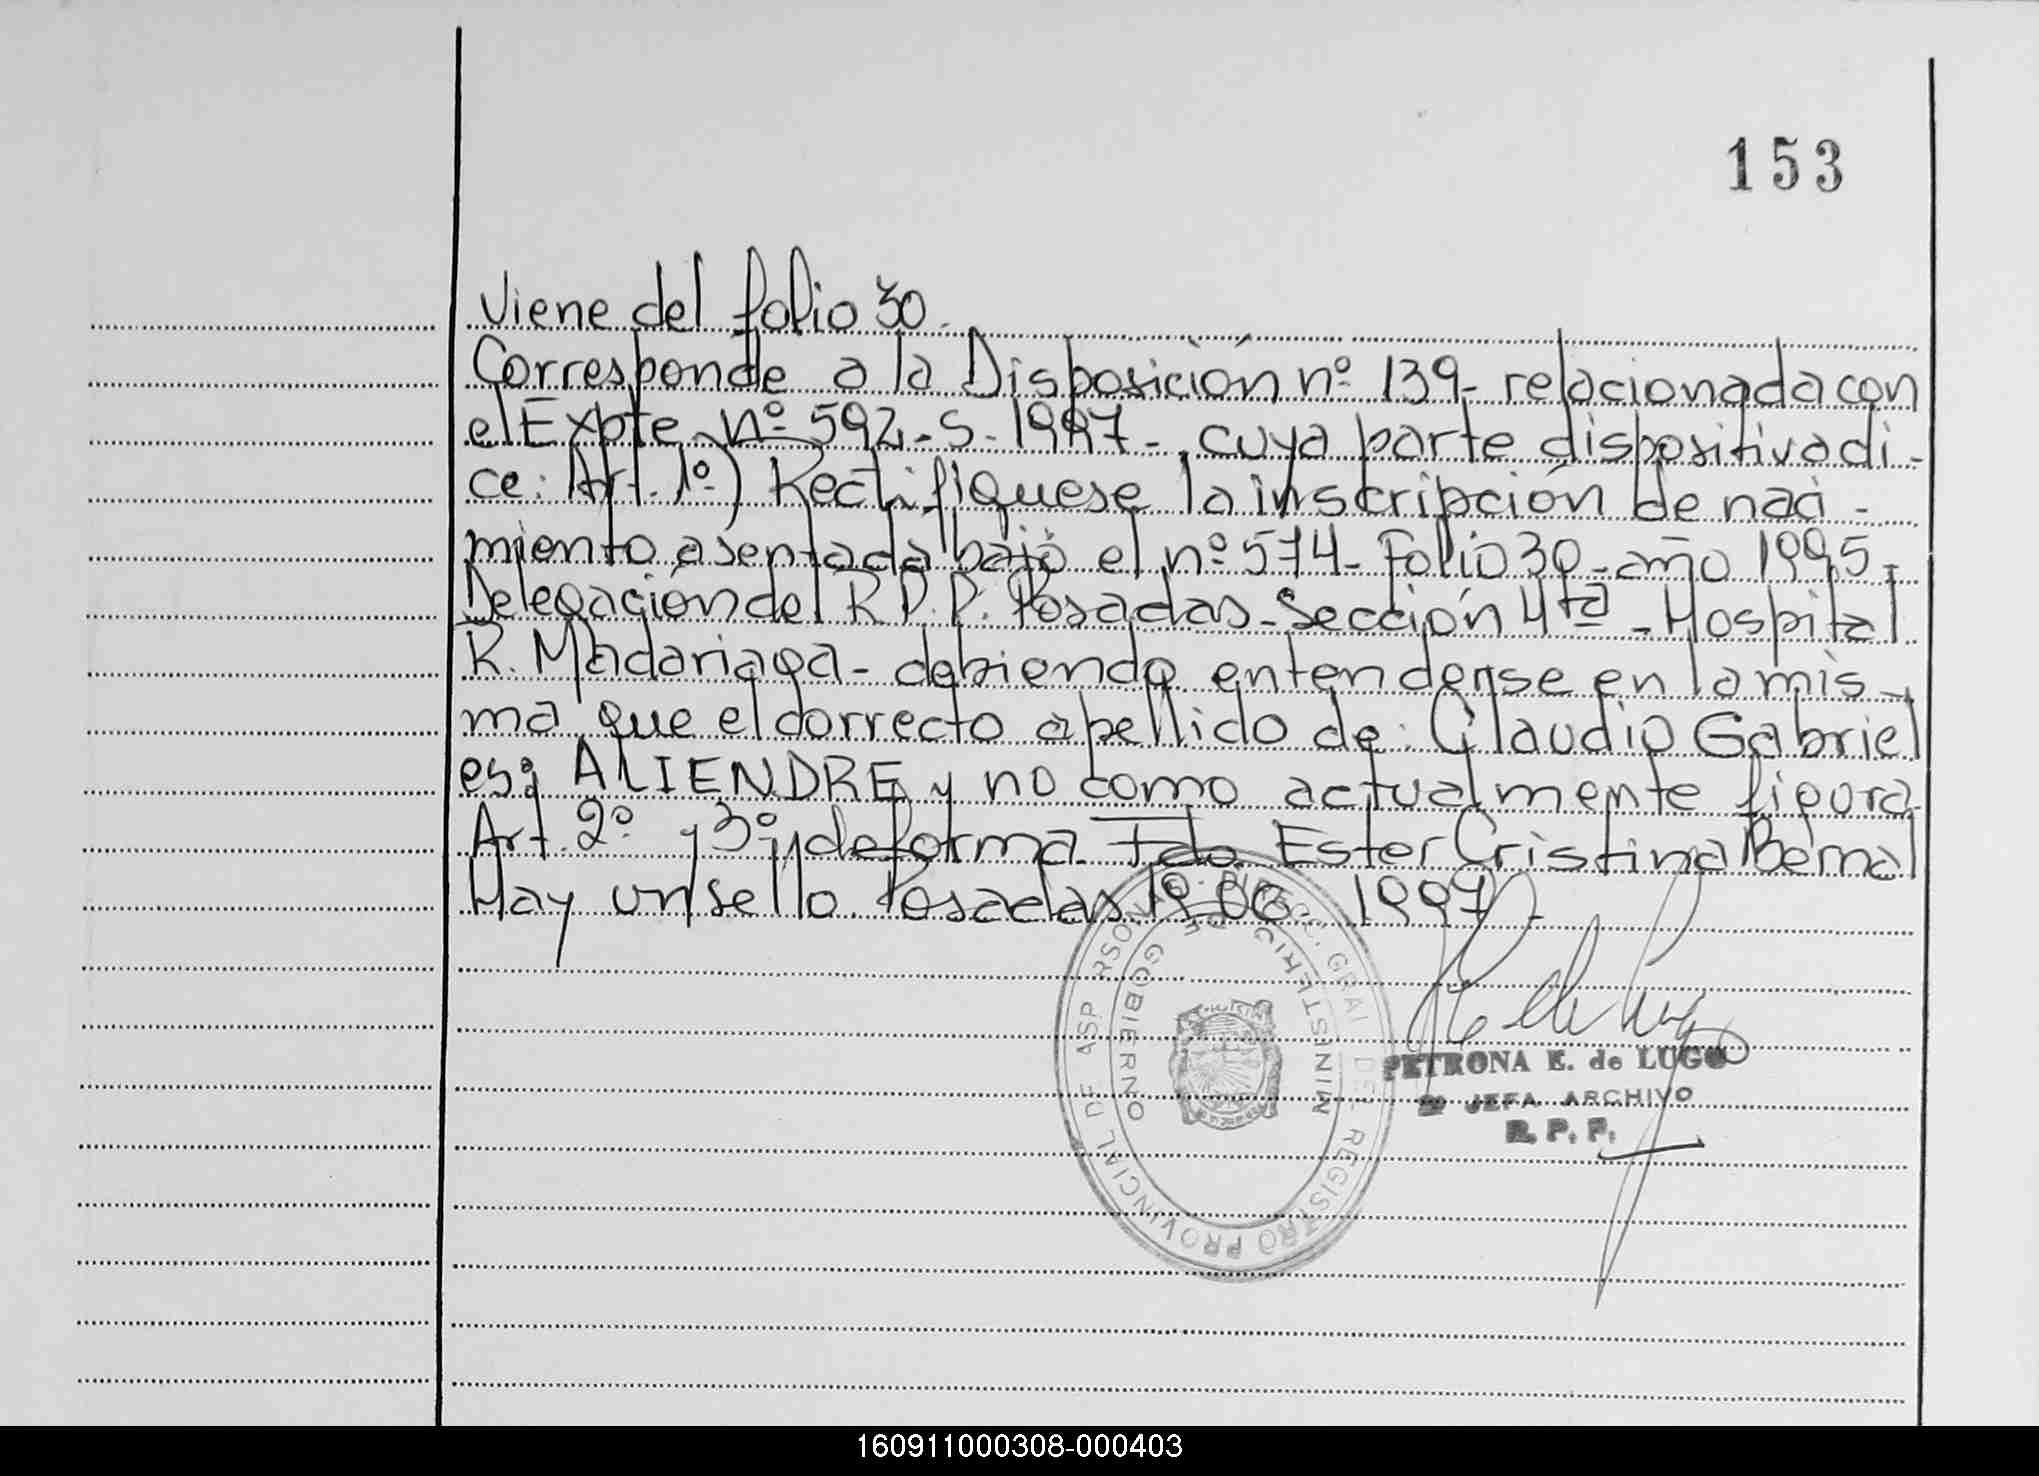 153
Viene del folio 30.
Corresponde a la Disposición nº 139- relacionada con
el Expte nº 592-S-1997-, cuya parte dispositiva di-
ce: Art. 1º) Rectifíquese la inscripción de naci-
miento asentada bajo el nº 574- Folio 30- año 1995-
Delegación del R.P.P. Posadas- Sección 4ta - Hospital
R. Madariaga- debiendo entenderse en la mis-
ma que el correcto apellido de: Claudio Gabriel
es: ALIENDRE y no como actualmente figura
Art. 2º y 3º y de forma. Fdo. Ester Cristina Bernal
Hay un sello. Posadas 1997.
DIRECC. GRAL DEL REGISTRO PROVINCIAL DE
MINISTERIO DE GOBIERNO
PETRONA E. de LUGO
JEFA ARCHIVO
R. P. P.
160911000308-000403